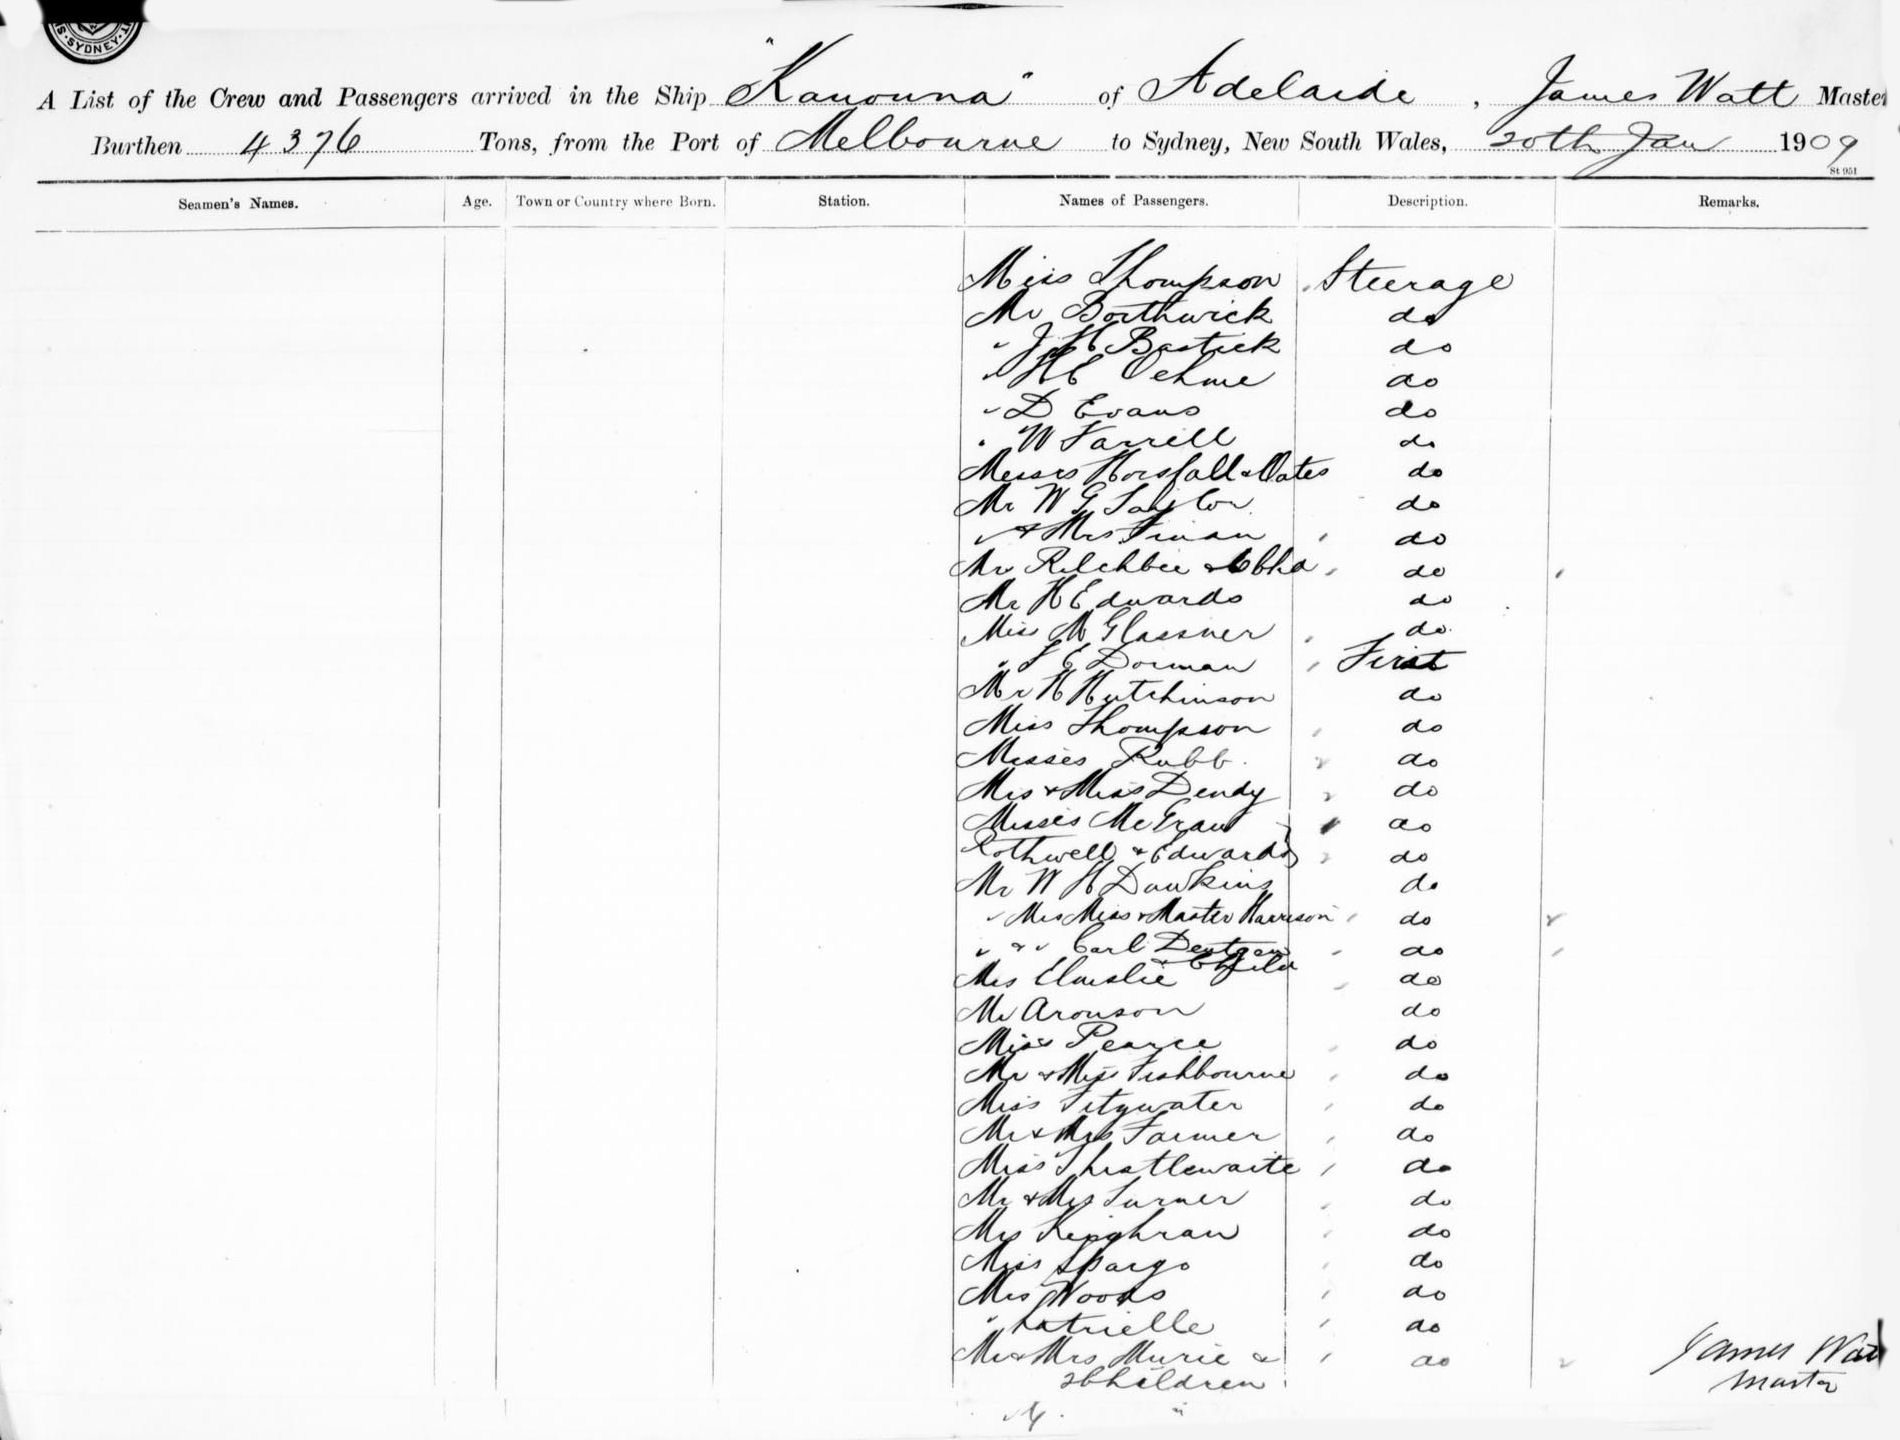 SYDNEY
A List of the Crew and Passengers arrived in the Ship "Kanowna" of Adelaide, James Watt Master
Burthen 4376 Tons, from the Port of Melbourne to Sydney, New South Wales, 20th Jan 1909
St 951
Seamen's Names. Age. Town or Country where Born. Station. Names of Passengers. Description. Remarks.
Miss Thompson Steerage
Mr Borthwick do
" J H Bastick do
" H E Oehme do
" D Evans do
" W Farrell do
Messrs Horsfall & Oates do
Mr W G Taylor do
" & Mrs Finan do
Mr & Chd do
Mr H E Edwards do
Miss M Glassner do
" Dorman First
Mr H Hutchinson do
Miss Thompson do
Misses Rubb do
Mrs & Miss Dendy do
Misses McGraw do
Rothwell & Edwards do
Mr W H Dawkins do
" Mrs Miss & Master Harrison do
" & " Carl Dentgen do
& Child
Mrs Elmslie do
Mr Aronson do
Miss Pearce do
Mr & Miss Fishbourne do
Miss do
Mr & Mrs Farmer do
Miss Thistlewaite do
Mr & Mrs Turner do
do
Miss Spargo do
Mrs Woods do
" Latrielle do
Mr & Mrs Murie & do
2 Children
James Watt
Master